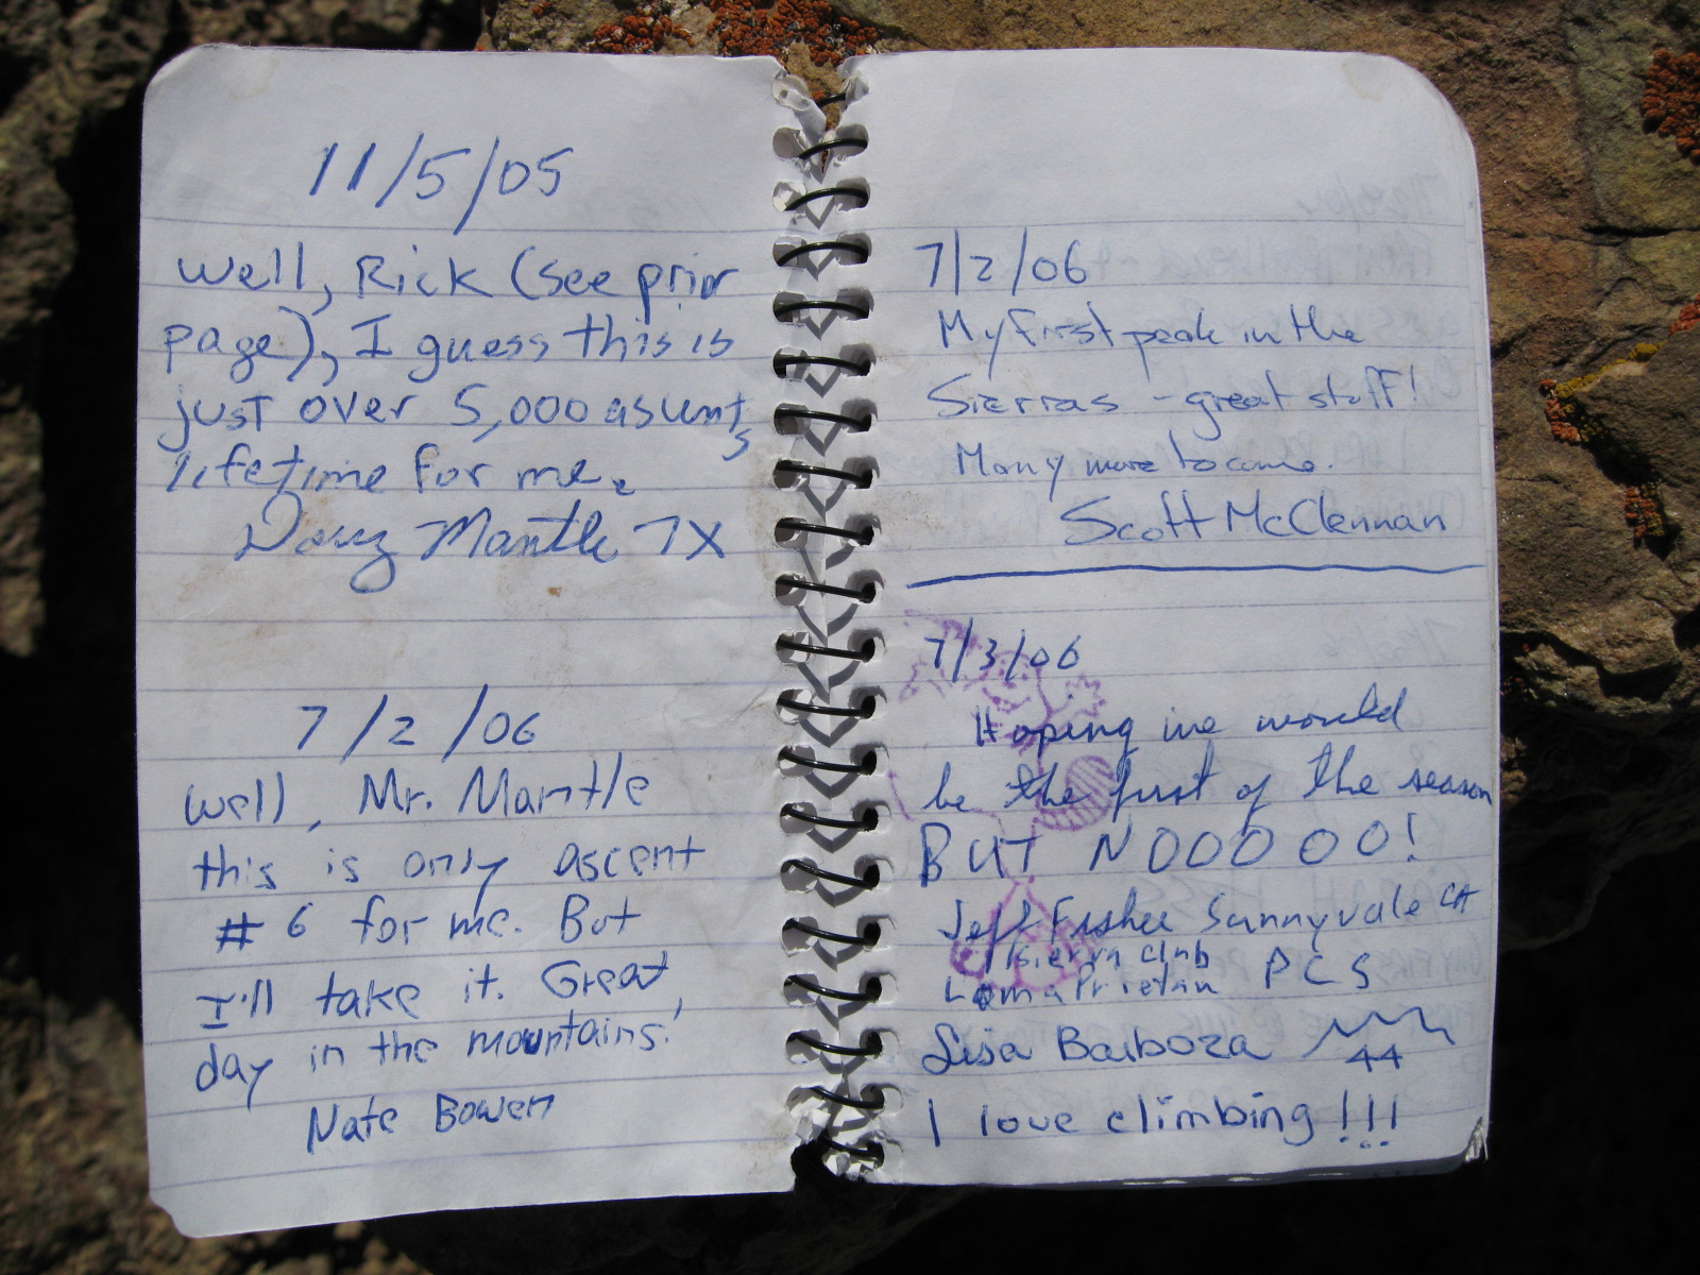 11/5/05
Well, Rick (see prior
page), I guess this is
just over 5,000 asunts
lifetime for me.
Doug Mantle 7X
7/2/06
Well, Mr. Mantle
this is only ascent
# 6 for me. But
I'll take it. Great
day in the mountains!
Nate Bowen
7/2/06
My first peak in the
Sierras - great stuff!
Many more to come.
Scott McClennan
7/3/06
Hoping we would
be the first of the season
BUT NOOOOO!
Jeff Fisher Sunnyvale CA
Sierra Club
Loma Prietan PCS
Lisa Barboza
44
I love climbing!!!